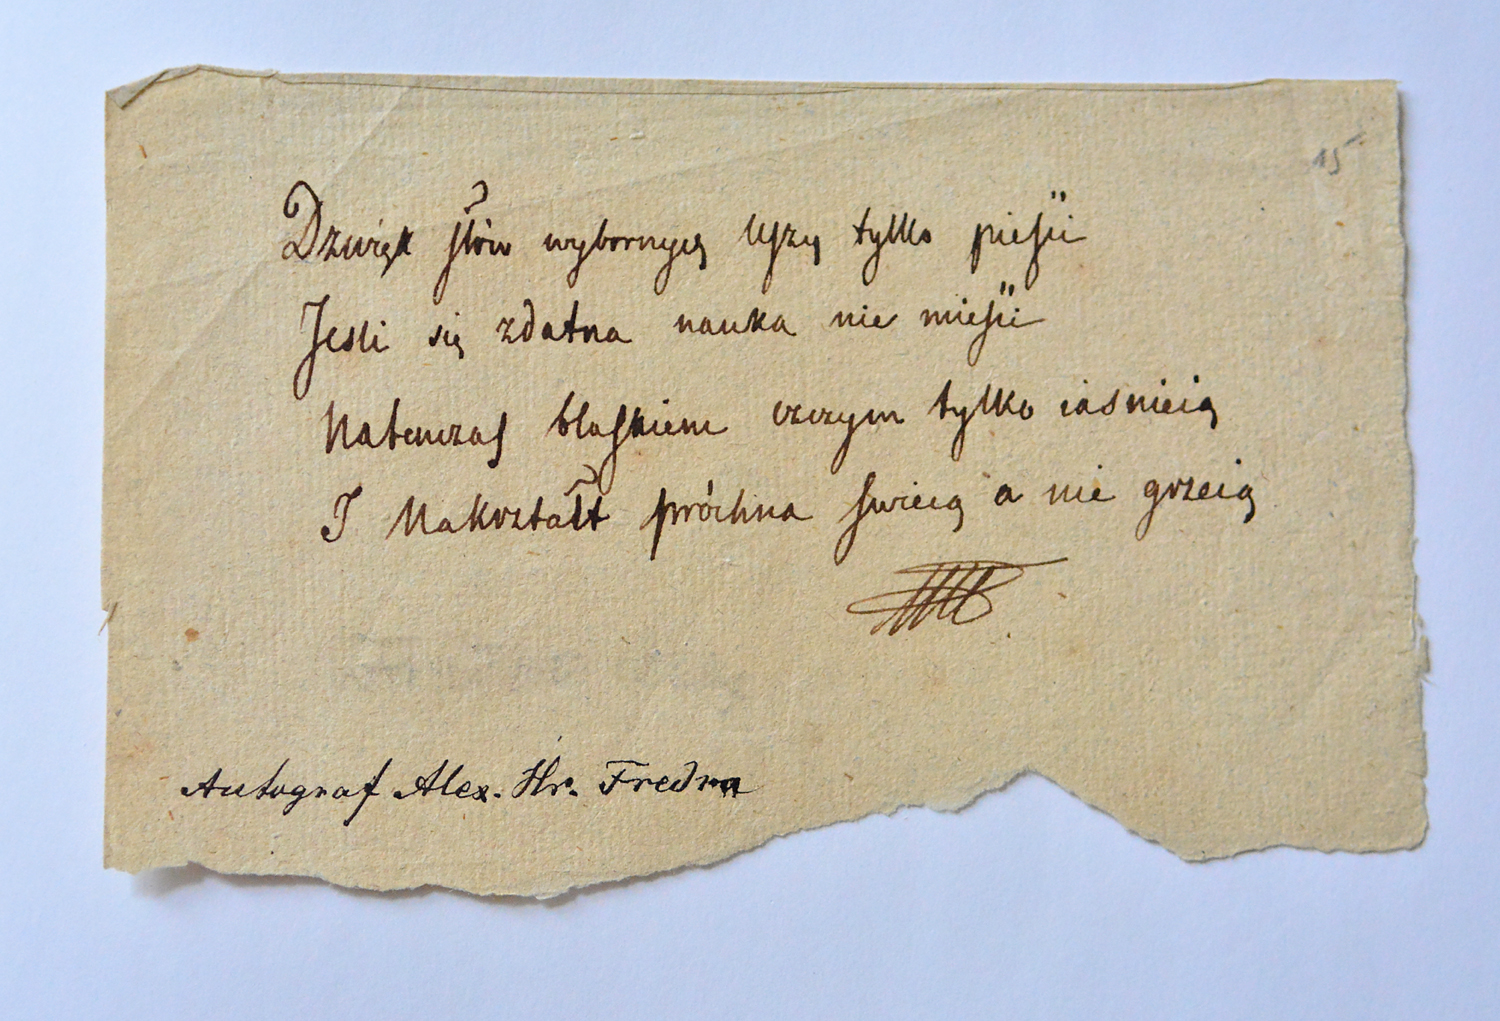 15
Dzwięk słów wybornych uszy tylko pieści
Jesli się zdatna nauka nie mieści
Natenczas blaskiem czczym tylko iaśnieią
I Nakształt próchna swiecą a nie grzeią
Autograf Alex. Hr. Fredra